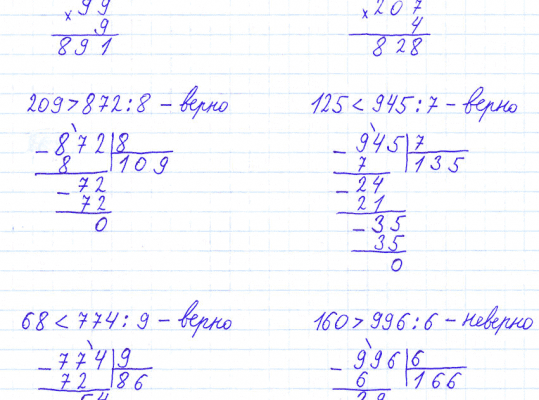 × 99
9
891
× 207
4
828
209 > 872 : 8 – верно
– 872 | 8
8 | 109
– 72
72
0
125 < 945 : 7 – верно
– 945 | 7
7 | 135
– 24
21
– 35
35
0
68 < 774 : 9 – верно
– 774 | 9
72 | 86
54
160 > 996 : 6 – неверно
– 996 | 6
6 | 166
39